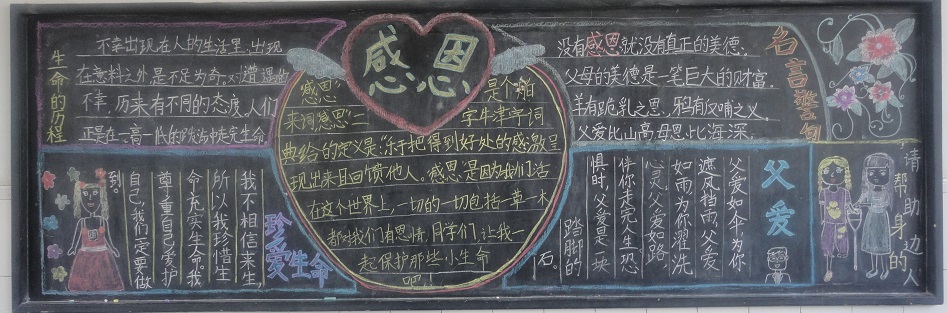 感恩
生命的历程
不幸出现在人的生活里,出现
在意料之外是不足为奇,对遭遇的
不幸,历来有不同的态度,人们
正是在一高一低的
中走完生命
珍爱生命
我不相信来生,
所以我珍惜生
命充实生命。我
尊重自己爱护
自己,我们需要做
到。
"感恩"
是个舶
来词"感恩"一
字牛津字词
典给的定义是:"乐于把得到好处的感激呈
现出来且回馈他人。感恩是因为我们活
在这个世界上,一切的一切包括一草一木
都对我们有恩情,同学们让我一
起保护那些小生命
吧!
名言警句
没有感恩就没有真正的美德.
父母的美德是一笔巨大的财富.
羊有跪乳之恩,鸦有反哺之义.
父爱比山高母恩比海深.
父爱
父爱如伞为你
遮风挡雨,父爱
如雨为你濯洗
心灵,父爱如路
伴你走完人生恐
惧时,父爱是一块
踏脚的
石。
请帮助身边的人